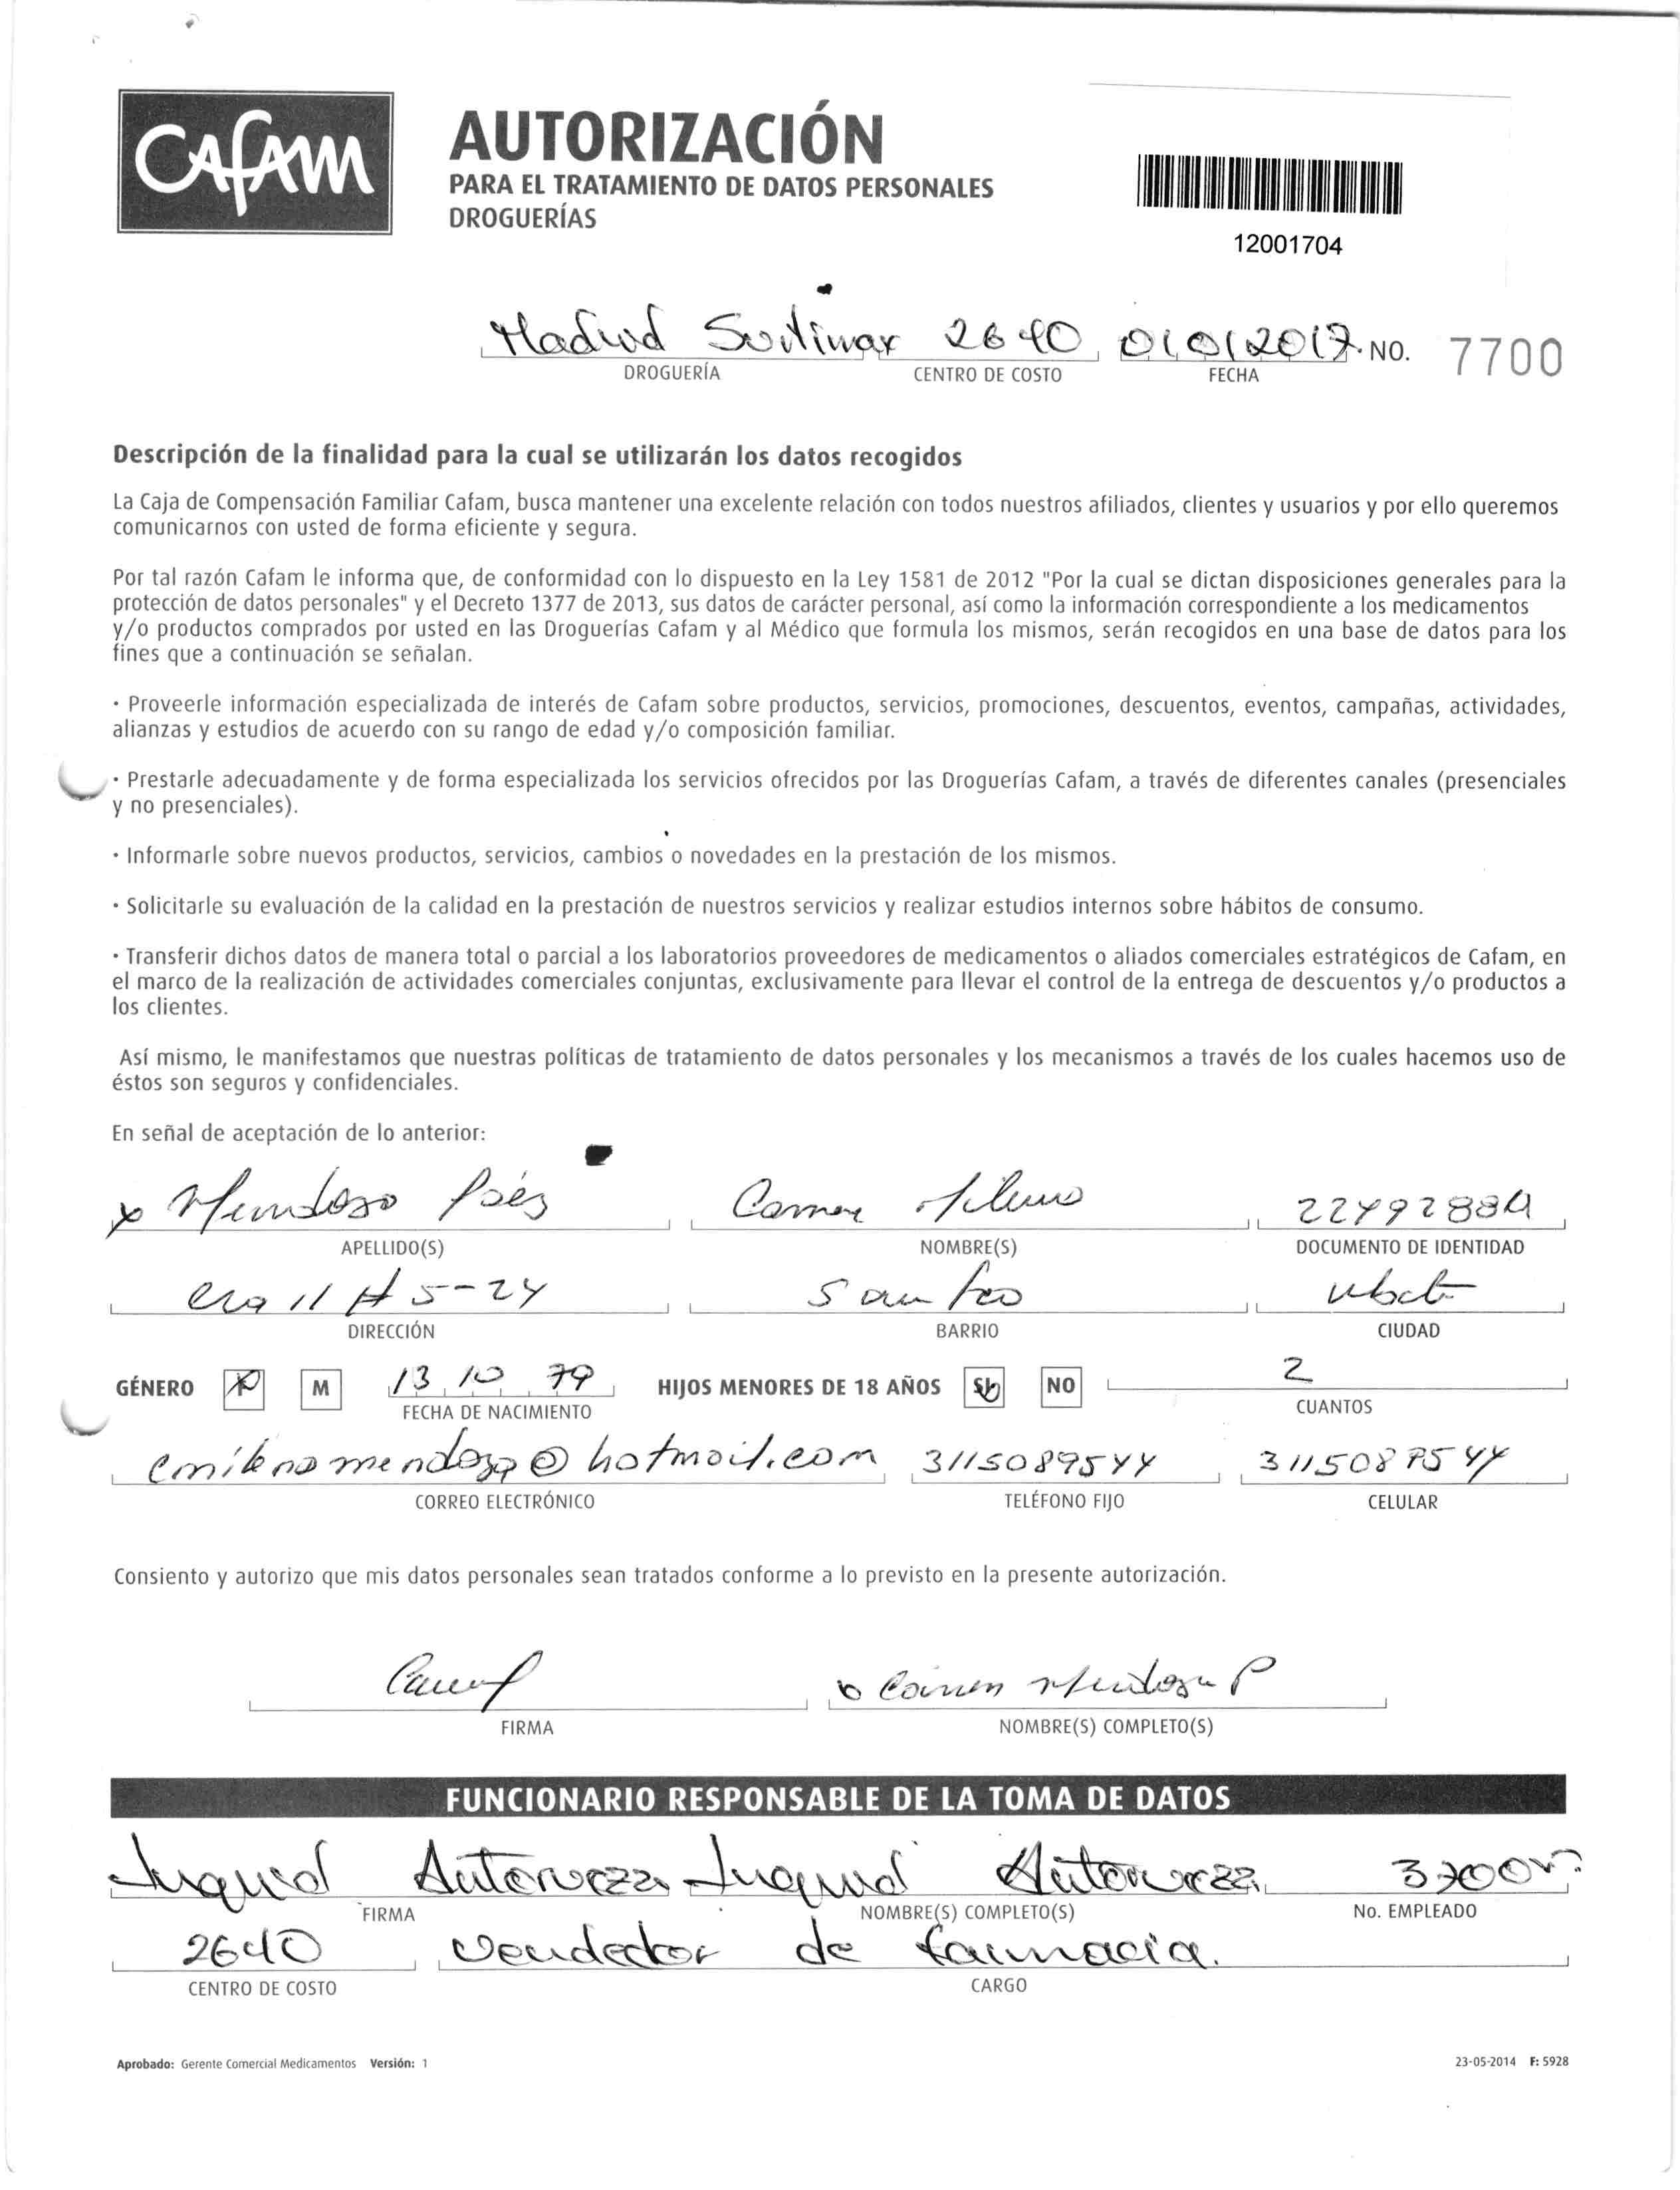 CAFAM
AUTORIZACIÓN
PARA EL TRATAMIENTO DE DATOS PERSONALES
DROGUERÍAS
12001704
Madrid 2640 01012017 NO. 7700
DROGUERÍA CENTRO DE COSTO FECHA
Descripción de la finalidad para la cual se utilizarán los datos recogidos
La Caja de Compensación Familiar Cafam, busca mantener una excelente relación con todos nuestros afiliados, clientes y usuarios y por ello queremos
comunicarnos con usted de forma eficiente y segura.
Por tal razón Cafam le informa que, de conformidad con lo dispuesto en la Ley 1581 de 2012 "Por la cual se dictan disposiciones generales para la
protección de datos personales" y el Decreto 1377 de 2013, sus datos de carácter personal, así como la información correspondiente a los medicamentos
y/o productos comprados por usted en las Droguerías Cafam y al Médico que formula los mismos, serán recogidos en una base de datos para los
fines que a continuación se señalan.
· Proveerle información especializada de interés de Cafam sobre productos, servicios, promociones, descuentos, eventos, campañas, actividades,
alianzas y estudios de acuerdo con su rango de edad y/o composición familiar.
· Prestarle adecuadamente y de forma especializada los servicios ofrecidos por las Droguerías Cafam, a través de diferentes canales (presenciales
y no presenciales).
· Informarle sobre nuevos productos, servicios, cambios o novedades en la prestación de los mismos.
· Solicitarle su evaluación de la calidad en la prestación de nuestros servicios y realizar estudios internos sobre hábitos de consumo.
· Transferir dichos datos de manera total o parcial a los laboratorios proveedores de medicamentos o aliados comerciales estratégicos de Cafam, en
el marco de la realización de actividades comerciales conjuntas, exclusivamente para llevar el control de la entrega de descuentos y/o productos a
los clientes.
Así mismo, le manifestamos que nuestras políticas de tratamiento de datos personales y los mecanismos a través de los cuales hacemos uso de
éstos son seguros y confidenciales.
En señal de aceptación de lo anterior:
x Mendoza Páez Carmen Milena
APELLIDO(S) NOMBRE(S) DOCUMENTO DE IDENTIDAD
cra 11 # 5-24
DIRECCIÓN BARRIO CIUDAD
GÉNERO M 13 10 79 HIJOS MENORES DE 18 AÑOS SI NO 2
FECHA DE NACIMIENTO CUANTOS
cmilenamendoza@hotmail.com 3115089544 3115089544
CORREO ELECTRÓNICO TELÉFONO FIJO CELULAR
Consiento y autorizo que mis datos personales sean tratados conforme a lo previsto en la presente autorización.
Carmen Mendoza P
FIRMA NOMBRE(S) COMPLETO(S)
FUNCIONARIO RESPONSABLE DE LA TOMA DE DATOS
FIRMA NOMBRE(S) COMPLETO(S) No. EMPLEADO
2640 Vendedor de farmacia.
CENTRO DE COSTO CARGO
Aprobado: Gerente Comercial Medicamentos Versión: 1 23-05-2014 F: 5928